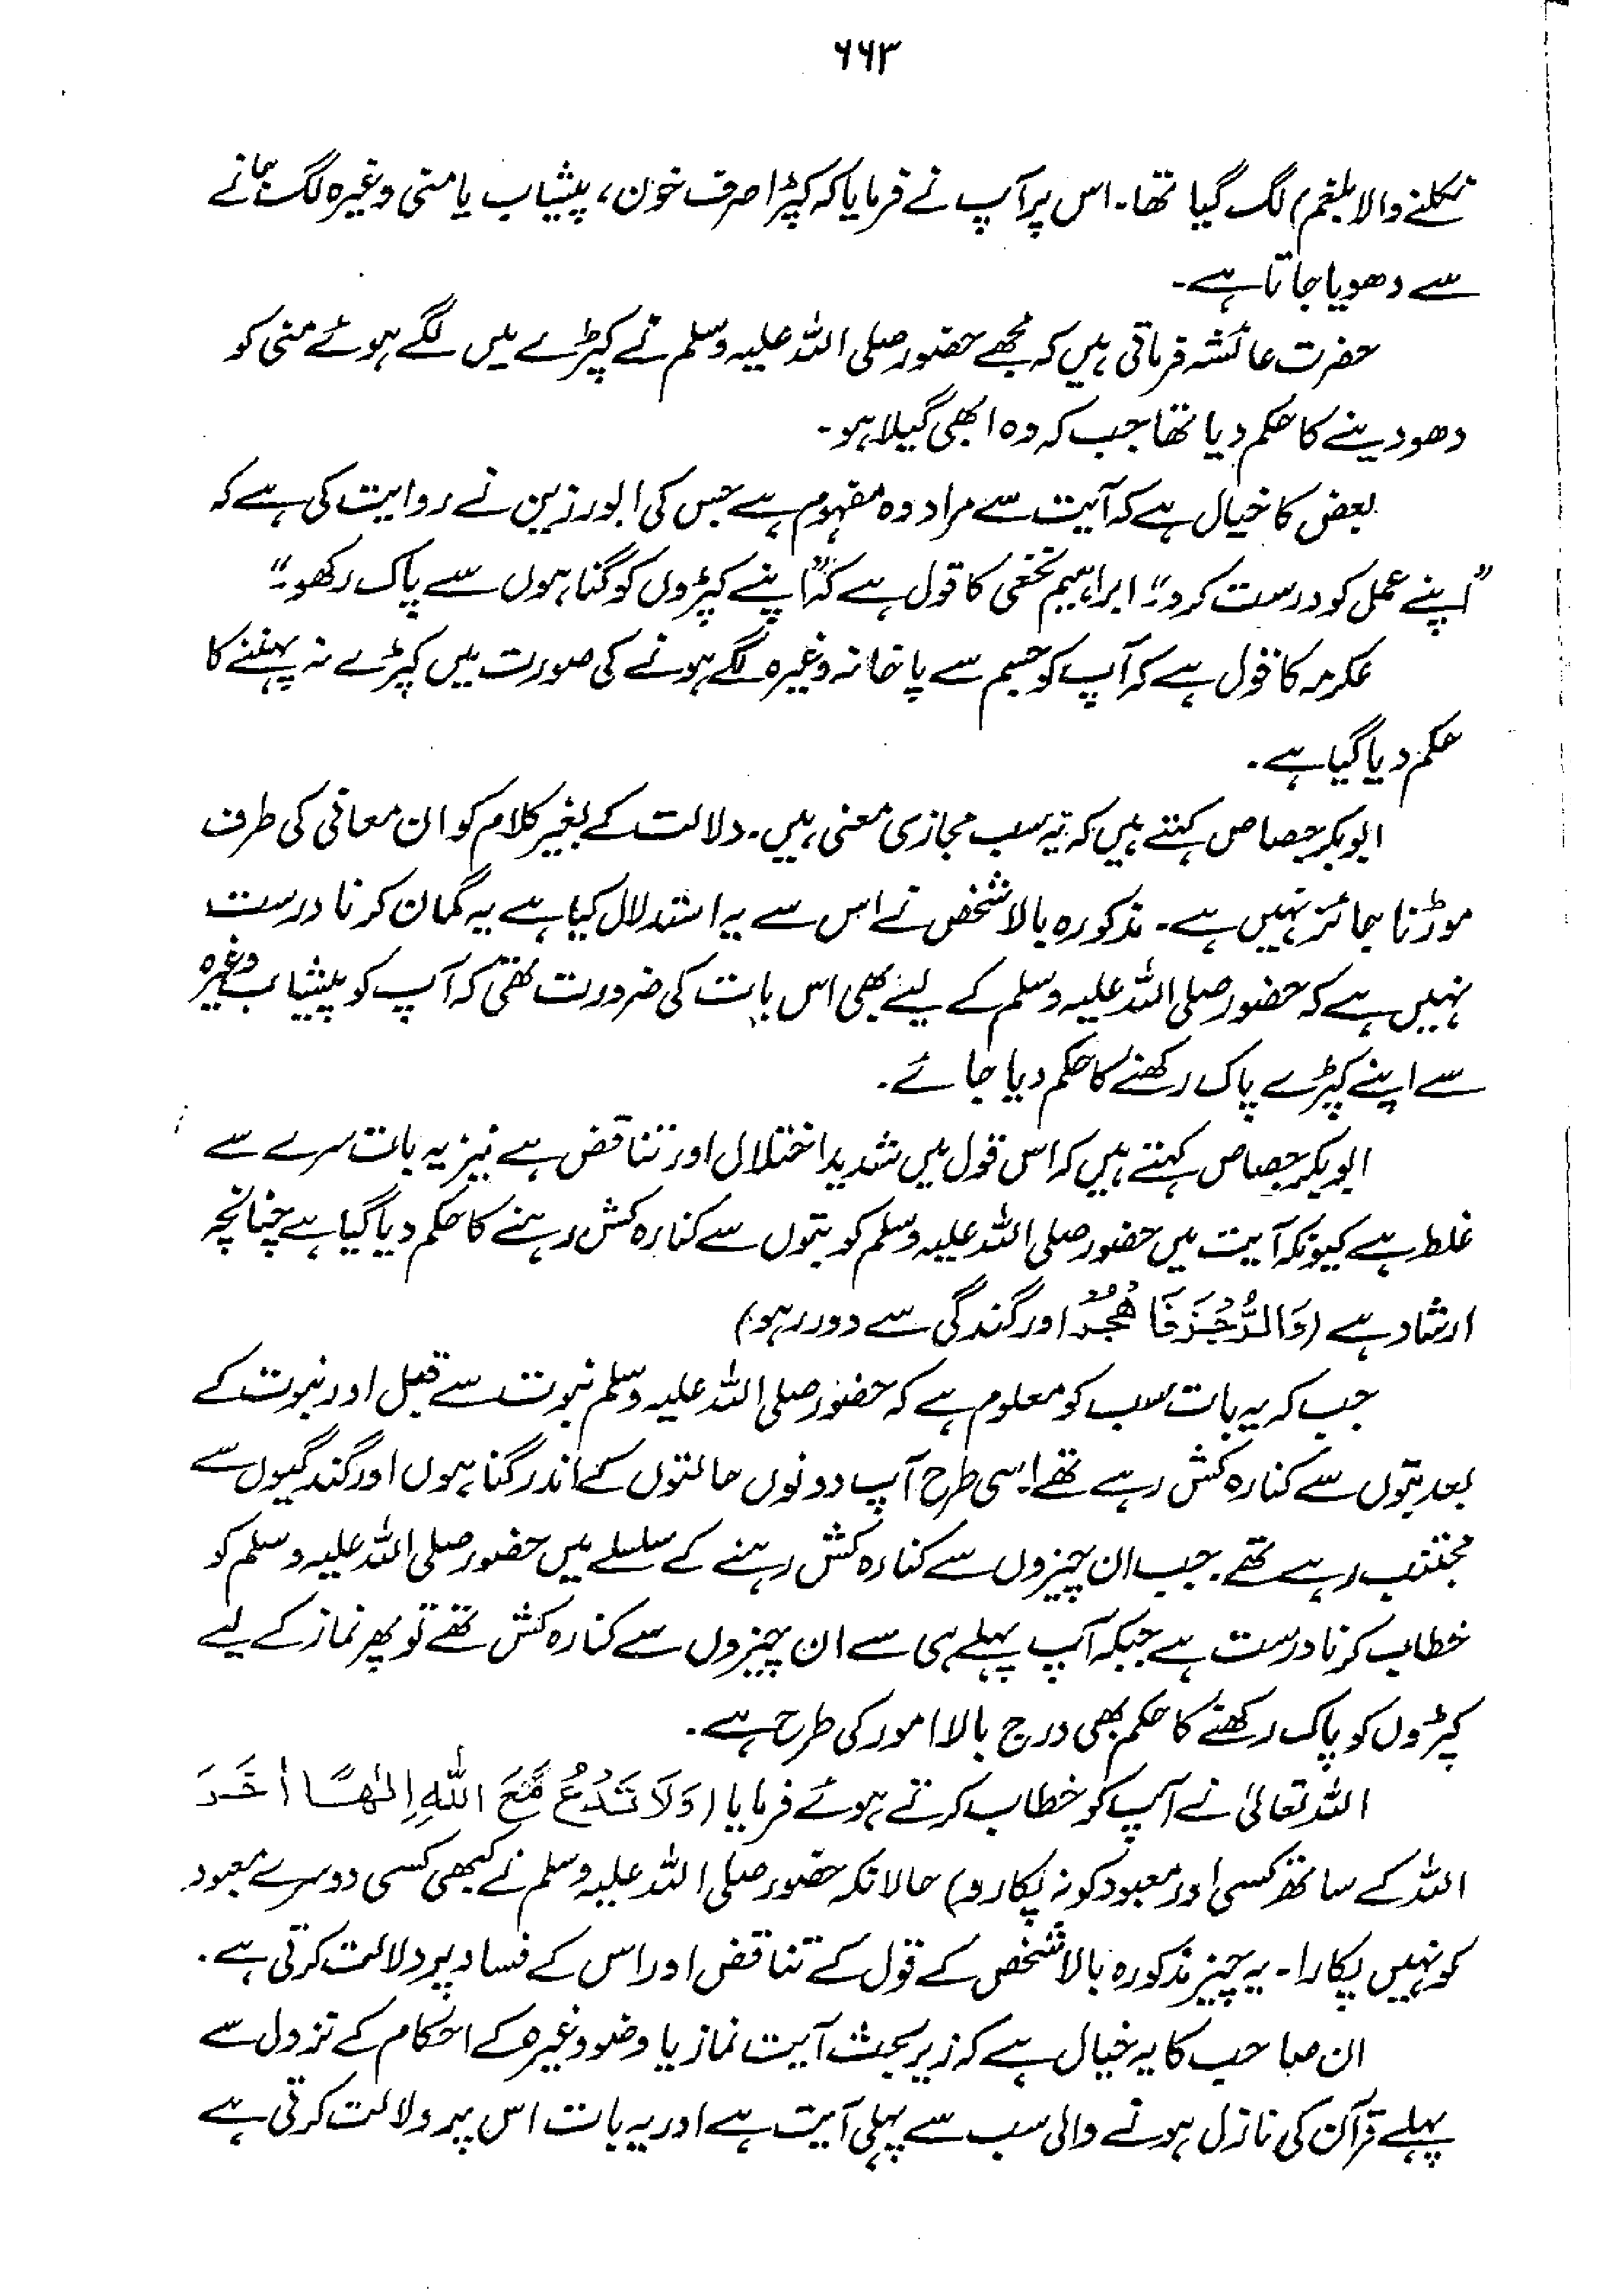 ۶۶۳
نکلنے والا بلغم) لگ گیا تھا۔ اس پر آپ نے فرمایا کہ کپڑا صرف خون، پیشاب یا منی وغیرہ لگ جانے
سے دھویا جاتا ہے۔
حضرت عائشہ فرماتی ہیں کہ مجھے حضور صلی اللہ علیہ وسلم نے کپڑے میں لگے ہوئے منی کو
دھو دینے کا حکم دیا تھا جب کہ وہ ابھی گیلا ہو۔
بعض کا خیال ہے کہ آیت سے مراد وہ مفہوم ہے جس کی ابورزین نے روایت کی ہے کہ
"اپنے عمل کو درست کرو" ابراہیم نخعی کا قول ہے کہ "اپنے کپڑوں کو گناہوں سے پاک رکھو۔"
عکرمہ کا قول ہے کہ آپ کو جسم سے پاخانہ وغیرہ لگے ہونے کی صورت میں کپڑے نہ پہننے کا
حکم دیا گیا ہے۔
ابوبکر جصاص کہتے ہیں کہ یہ سب مجازی معنی ہیں۔ دلالت کے بغیر کلام کو ان معانی کی طرف
موڑنا جائز نہیں ہے۔ مذکورہ بالا شخص نے اس سے یہ استدلال کیا ہے یہ گمان کرنا درست
نہیں ہے کہ حضور صلی اللہ علیہ وسلم کے لیے بھی اس بات کی ضرورت تھی کہ آپ کو پیشاب وغیرہ
سے اپنے کپڑے پاک رکھنے کا حکم دیا جائے۔
ابوبکر جصاص کہتے ہیں کہ اس قول میں شدید اختلال اور تناقض ہے نیز یہ بات سرے سے
غلط ہے کیونکہ آیت میں حضور صلی اللہ علیہ وسلم کو بتوں سے کنارہ کش رہنے کا حکم دیا گیا ہے چنانچہ
ارشاد ہے (وَالرُّجْزَ فَاهْجُرْ اور گندگی سے دور رہو)
جب کہ یہ بات سب کو معلوم ہے کہ حضور صلی اللہ علیہ وسلم نبوت سے قبل اور نبوت کے
بعد بتوں سے کنارہ کش رہے تھے۔ اسی طرح آپ دونوں حالتوں کے اندر گناہوں اور گندگیوں سے
مجتنب رہے تھے۔ جب ان چیزوں سے کنارہ کش رہنے کے سلسلے میں حضور صلی اللہ علیہ وسلم کو
خطاب کرنا درست ہے جبکہ آپ پہلے ہی سے ان چیزوں سے کنارہ کش تھے تو پھر نماز کے لیے
کپڑوں کو پاک رکھنے کا حکم بھی درج بالا امور کی طرح ہے۔
اللہ تعالیٰ نے آپ کو خطاب کرتے ہوئے فرمایا (وَلَا تَدْعُ مَعَ اللّٰهِ اِلٰهًا اٰخَرَ
اللہ کے ساتھ کسی اور معبود کو نہ پکارو) حالانکہ حضور صلی اللہ علیہ وسلم نے کبھی کسی دوسرے معبود
کو نہیں پکارا۔ یہ چیز مذکورہ بالا شخص کے قول کے تناقض اور اس کے فساد پر دلالت کرتی ہے۔
ان صاحب کا یہ خیال ہے کہ زیر بحث آیت نماز یا وضو وغیرہ کے احکام کے نزول سے
پہلے قرآن کی نازل ہونے والی سب سے پہلی آیت ہے اور یہ بات اس پر دلالت کرتی ہے